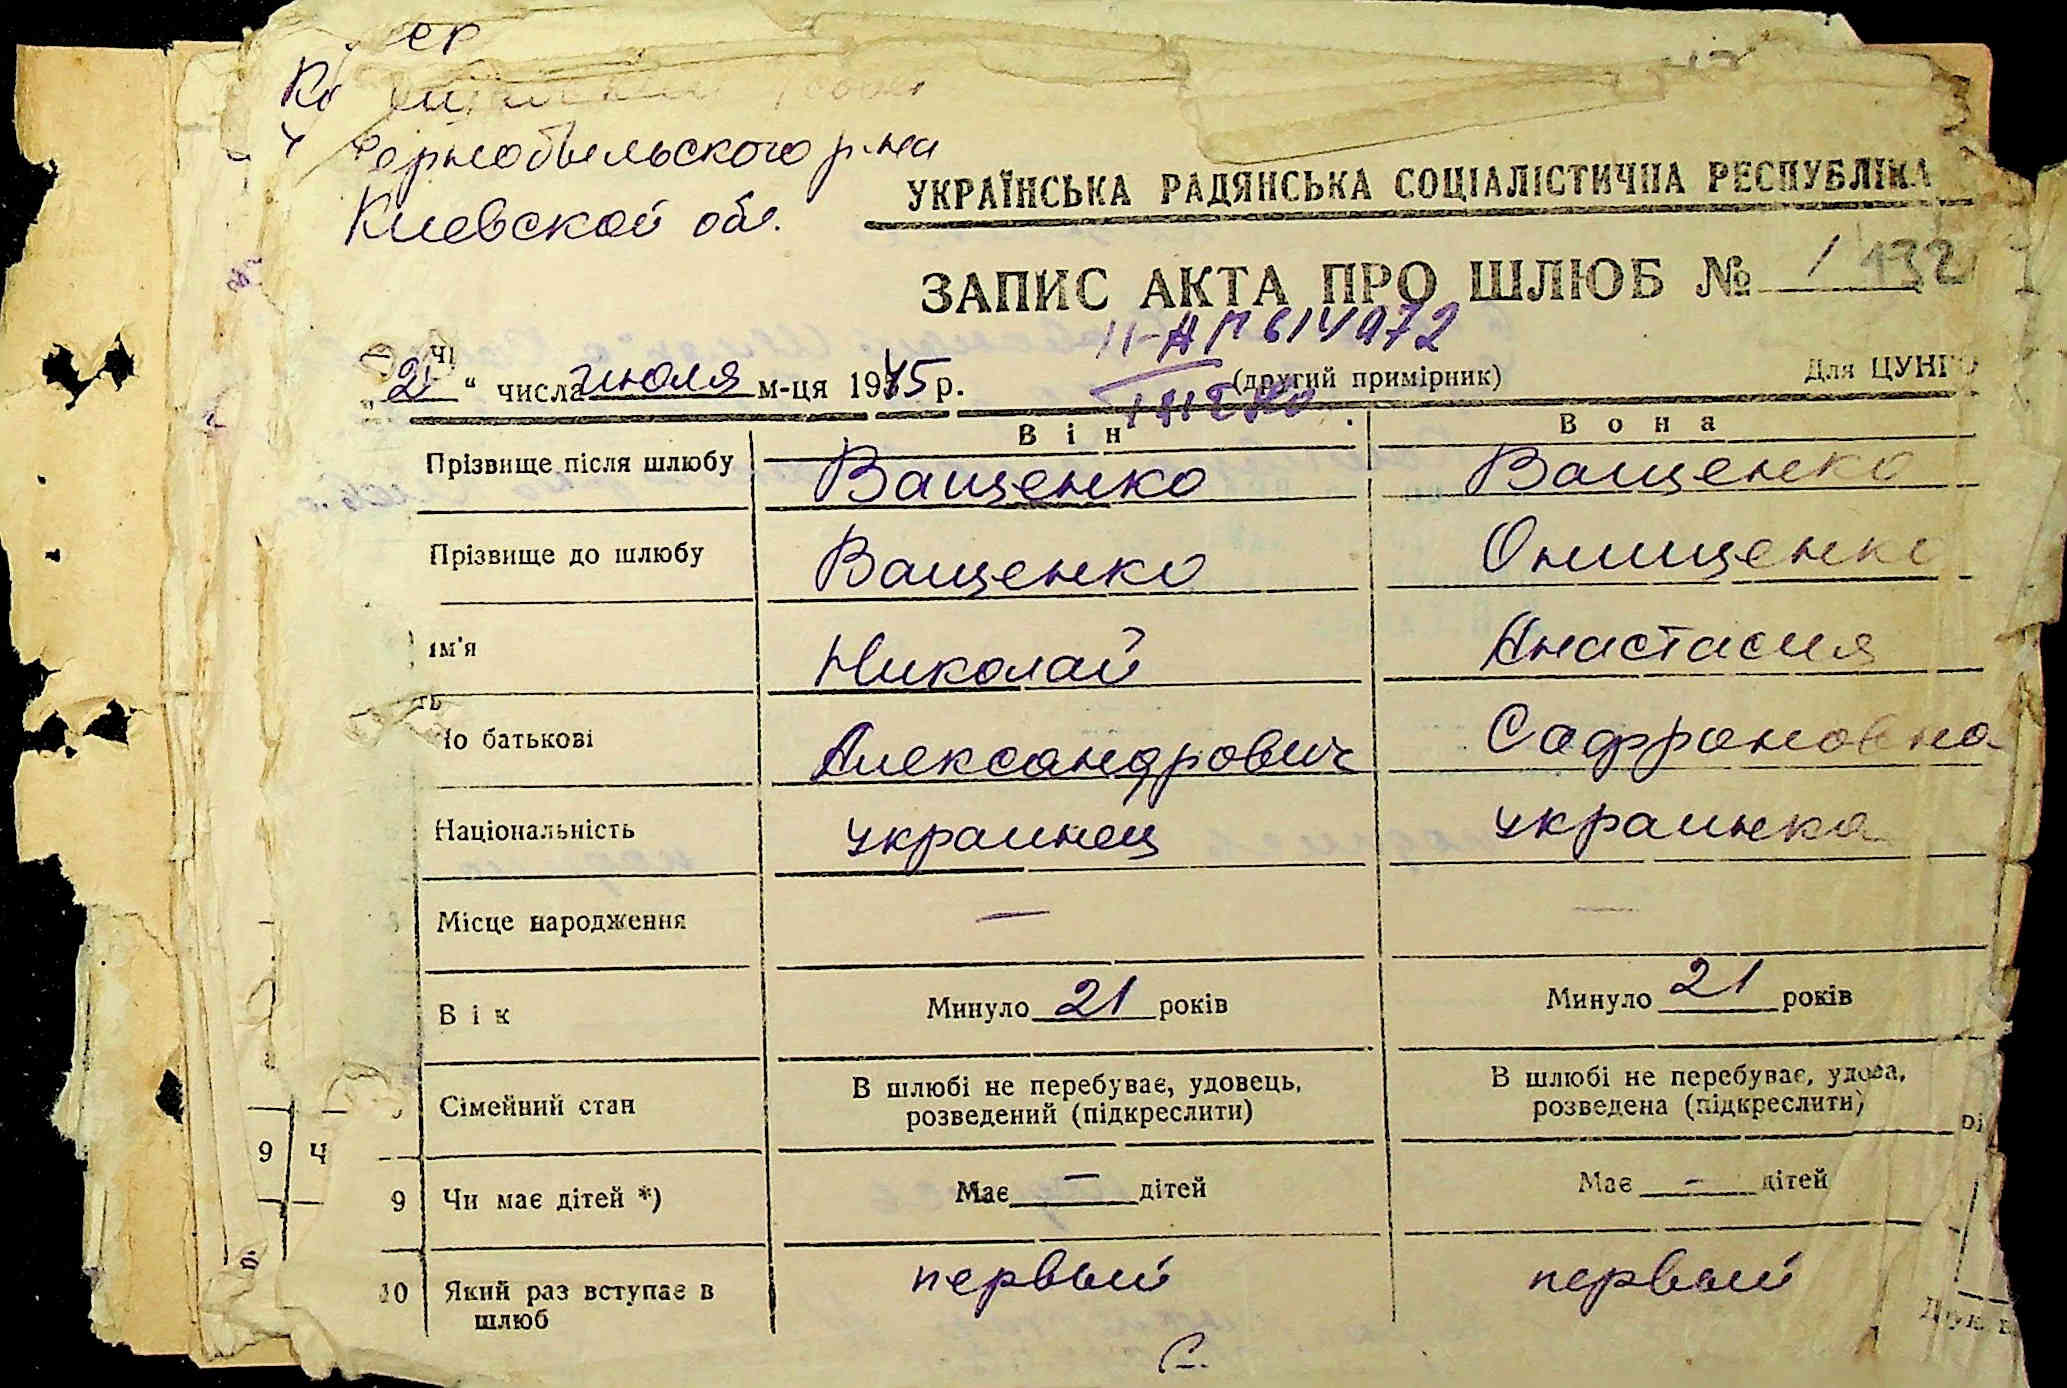 Чернобыльского р-на
Киевской обл.
УКРАЇНСЬКА РАДЯНСЬКА СОЦІАЛІСТИЧНА РЕСПУБЛІКА
ЗАПИС АКТА ПРО ШЛЮБ № 1 132
II-АП 614972
„2“ числа июля м-ця 1945 р. (другий примірник) Для ЦУНГО
Він Вона
Прізвище після шлюбу Ващенко Ващенко
Прізвище до шлюбу Ващенко Онищенко
Ім'я Николай Анастасия
По батькові Александрович Сафроновна
Національність украинец украинка
Місце народження — —
Вік Минуло 21 років Минуло 21 років
Сімейний стан В шлюбі не перебуває, удовець, розведений (підкреслити) В шлюбі не перебуває, удова, розведена (підкреслити)
9 Ч 9 Чи має дітей *) Має — дітей Має — дітей
10 Який раз вступає в шлюб первый первый